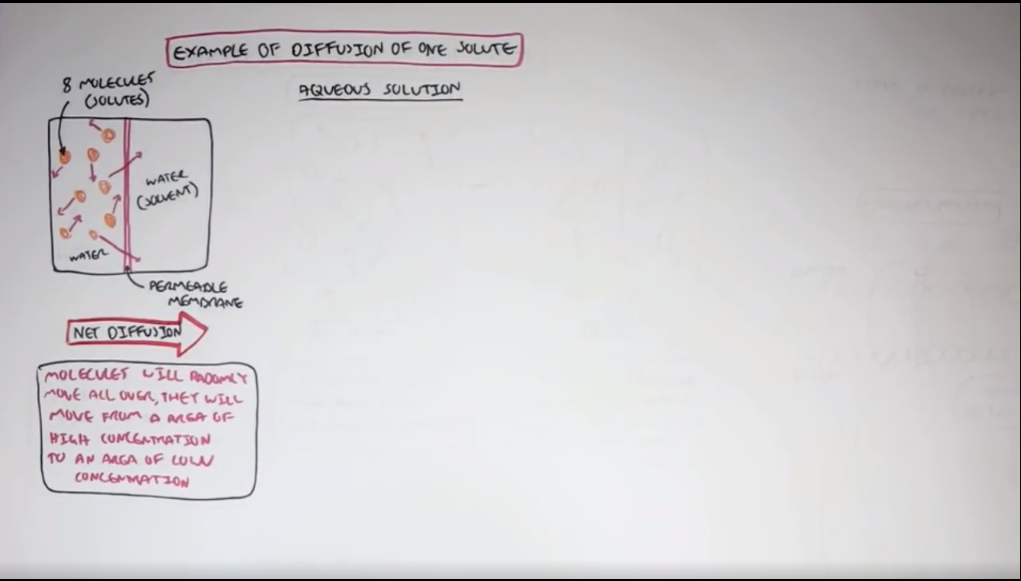 EXAMPLE OF DIFFUSION OF ONE SOLUTE
AQUEOUS SOLUTION
8 MOLECULES
(SOLUTES)
WATER
(SOLVENT)
WATER
PERMEABLE
MEMBRANE
NET DIFFUSION
MOLECULES WILL RADOMLY
MOVE ALL OVER, THEY WILL
MOVE FROM A AREA OF
HIGH CONCENTRATION
TO AN AREA OF LOW
CONCENTRATION